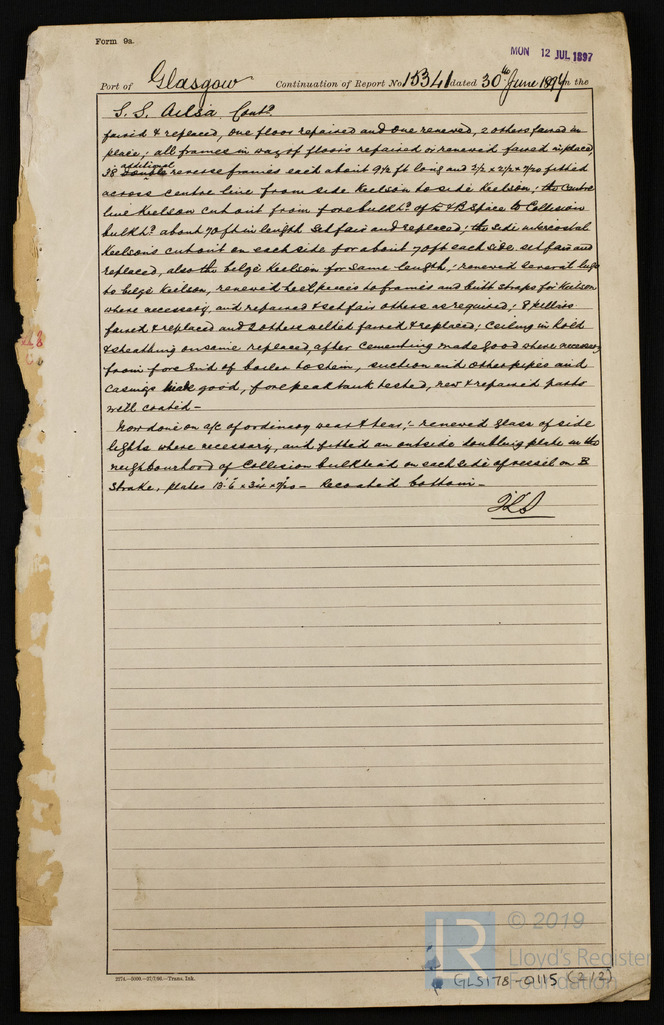 Form 9a.
MON 12 JUL 1897
Port of Glasgow Continuation of Report No 15341 dated 30th June 1897 on the
S.S. Ailsa Contd.
faired & replaced, one floor repaired and one renewed, 2 others faired in
place; all frames in way of floors repaired or renewed faired in place,
38 additional reverse frames each about 9½ ft long and 2½ x 2½ x 7/20 fitted
across centre line from side Keelson to side Keelson; the centre
line Keelson cut out from fore bulkhd. of E & B Space to Collision
bulkhd. about 70 ft in length set fair and replaced; the side intercostal
Keelsons cut out on each side for about 70 ft each side set fair and
replaced, also the bilge Keelson for same length; renewed several lugs
to bilge Keelson, renewed heel pieces to frames and butt straps for Keelson
where necessary, and repaired & set fair others as required; 8 pillars
faired & replaced and 2 others faired & replaced; Ceiling in hold
& sheathing on same replaced, after Cementing made good where necessary
from fore end of boiler to stem, suction and other pipes and
Casings made good, forepeak tank tested, new & repaired parts
well coated –
Now done on a/c of ordinary wear & tear; – renewed glass of side
lights where necessary, and fitted an outside doubling plate in the
neighbourhood of Collision bulkhead on each side of vessel on B
Strake, plates 13'.6 x x 7/20 – Recoated bottom –
2274.—5000.—27/7/96.—Trans. Ink.
LR
© 2019
Lloyd's Register
Foundation
GLS178-0115 (2/2)